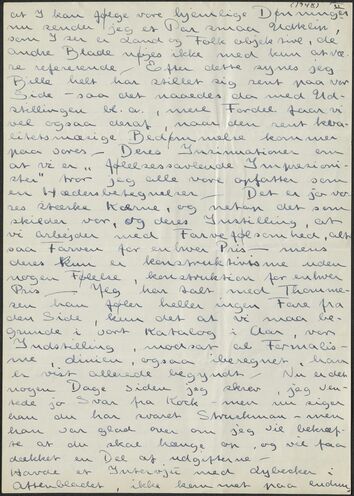 (1948) VI
at I kan følge vore hjemlige Dønninger
nu sender jeg et Par smaa Udklip,
som I ser er danske Folk objektive, de
andre Blade nøjes ikke med kun at væ-
re refererende. Efter dette synes jeg
Bille helt har stillet sig rent paa vor
Side - saa det naaedes da med Ud-
stillingen bl. a., mere Fordel faar vi
vel ogsaa deraf, naar den rent kva-
litetsmæssige Bedømmelse kommer
paa vores - Deres Insinuationer om
at vi er "følelsessavlende Impressioni-
ster" tror jeg alle vore opfatter som
en Hædersbetegnelse - Det er jo vor
ses stærke Kærne, og netop det som
skilder vor, og deres Indstilling, at
vi arbejder med Farvefølsomhed, alt-
saa Farven for enhver Pris - mens
deres kun er konstruktivisme uden
nogen Følelse, konstruktion for enhver
Pris - Jeg har talt med Thomme-
sen han føler heller ingen Fare fra
den Side, kun det at vi maa be-
grunde i vort Katalog i Aar, vor
Indstilling, modsat al Formalis-
me, dinien, ogsaa iberegnet, han
er vist allerede begyndt - Nu er det
nogen Dage siden jeg skrev, jeg ven-
tede jo Svar fra Koch - men nu siger
han du har svaret Struckman - men
han var glad over om jeg vil bekræf-
te at du skal hænge op, og vil faa
dækket en Del af udgifterne -
Havde et Intervju med dybecker i
Aftenbladet, ikke kommet paa endnu